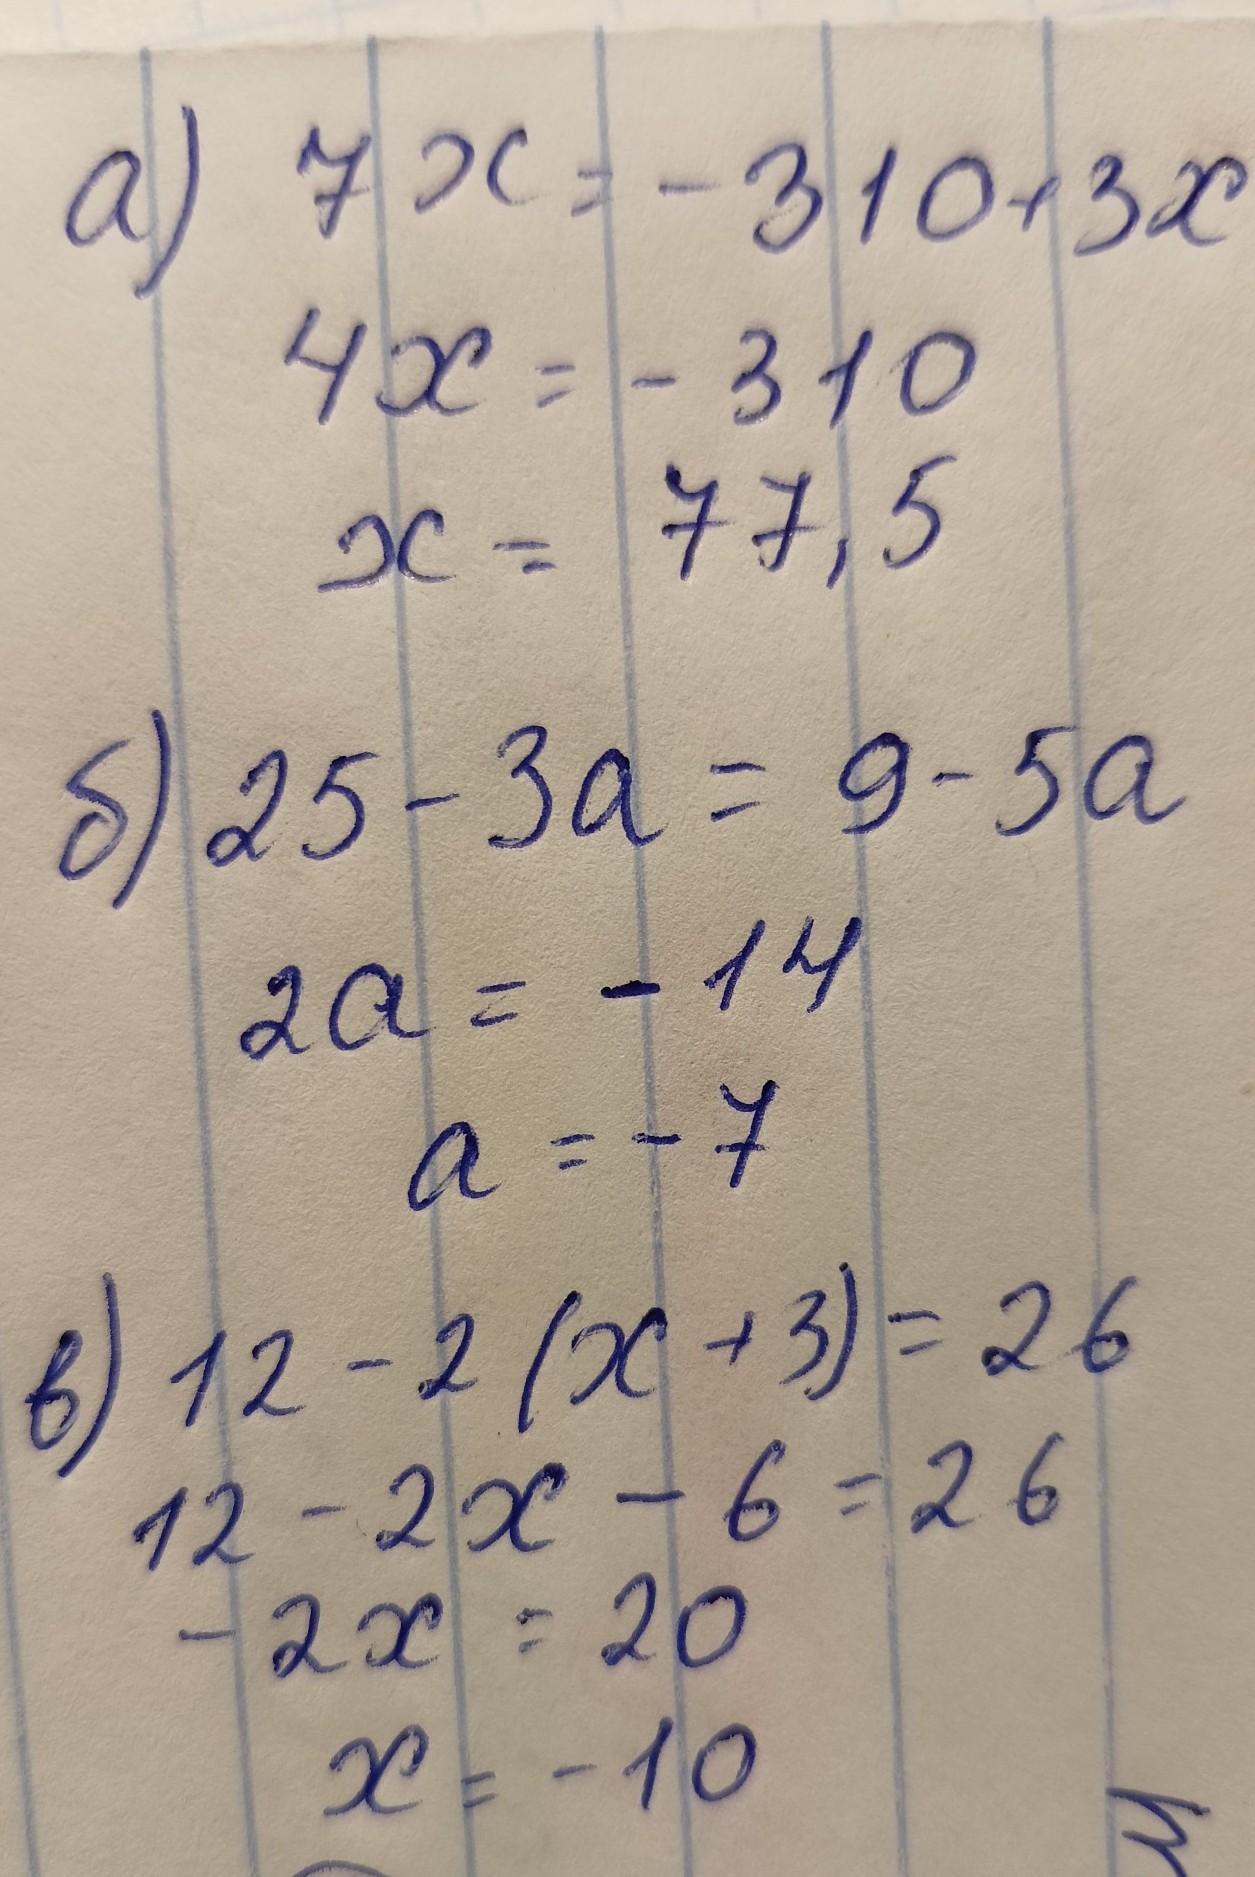 а) 7x = - 310 + 3x
4x = - 310
x = 77,5
б) 25 - 3a = 9 - 5a
2a = - 14
a = - 7
в) 12 - 2 (x + 3) = 26
12 - 2x - 6 = 26
- 2x = 20
x = - 10